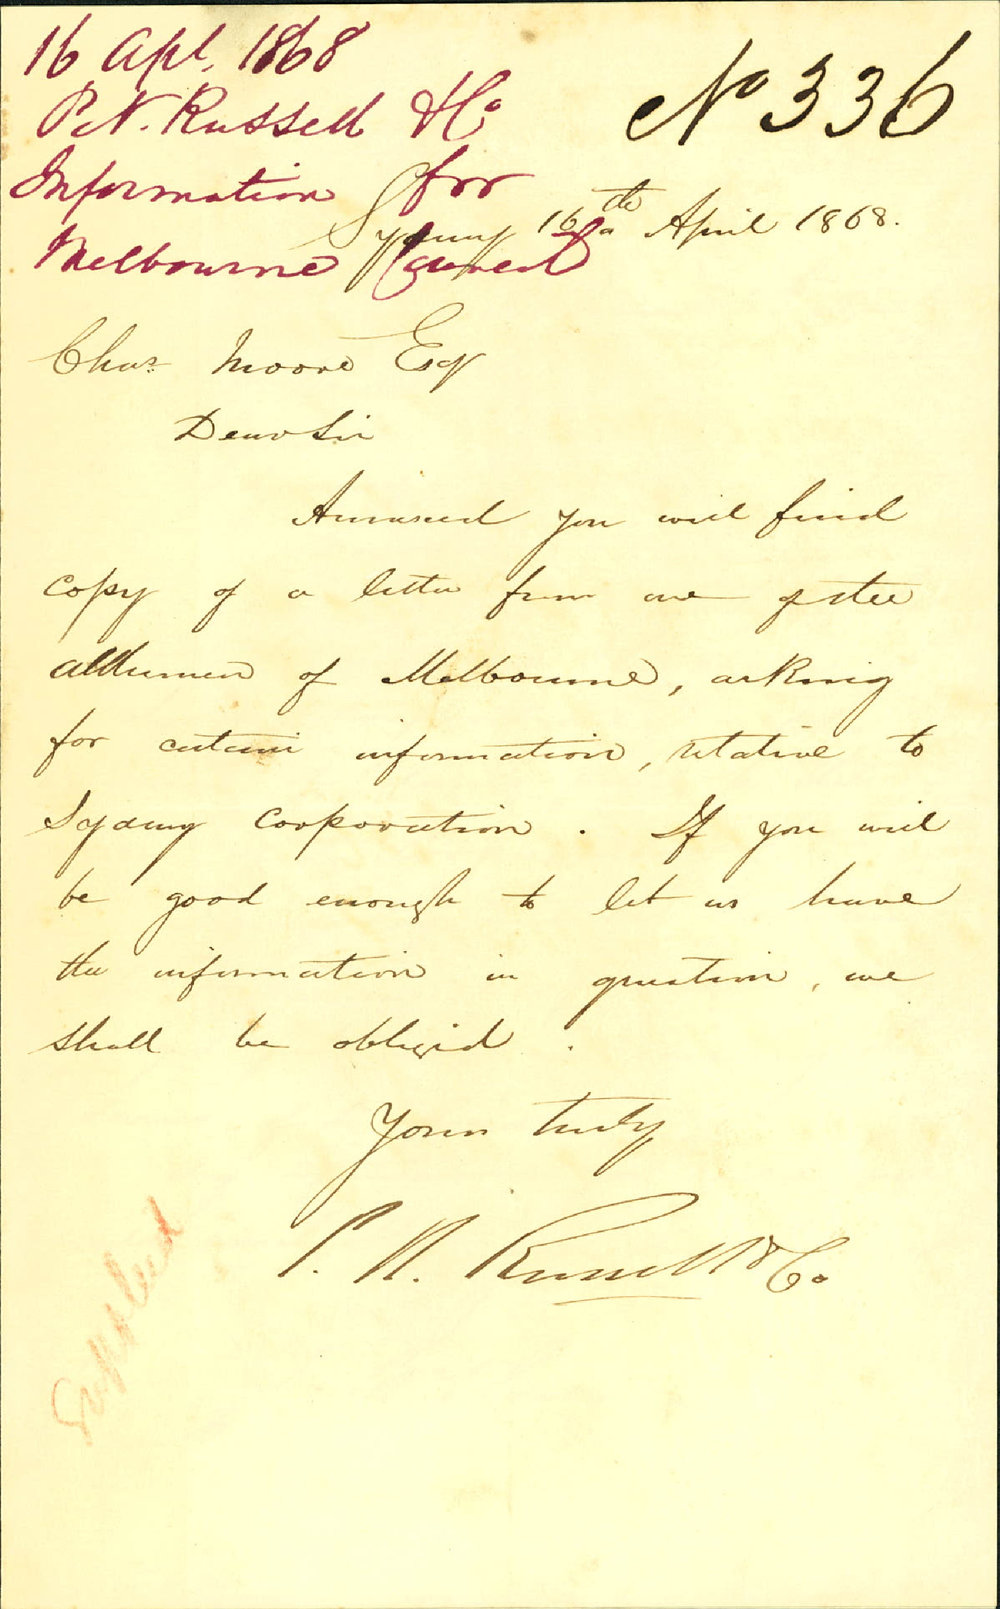 16 Apl. 1868
P.N. Russell & Co
Information for
Melbourne Council
No 336
Sydney 16th April 1868.
Chas. Moore Esq
Dear Sir
Annexed you will find
copy of a letter from one of the
alldermen of Melbourne, asking
for certain information, relative to
Sydney Corporation. If you will
be good enough to let us have
the information in question, we
shall be obliged.
Yours truly
P. N. Russell & Co
Supplied